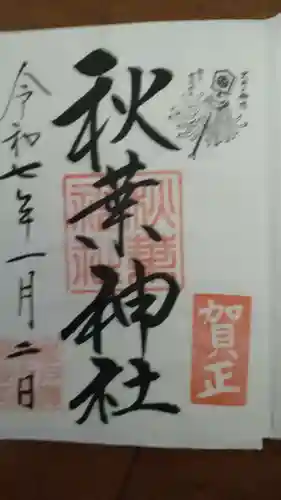 賀正
秋葉神社
令和七年一月二日